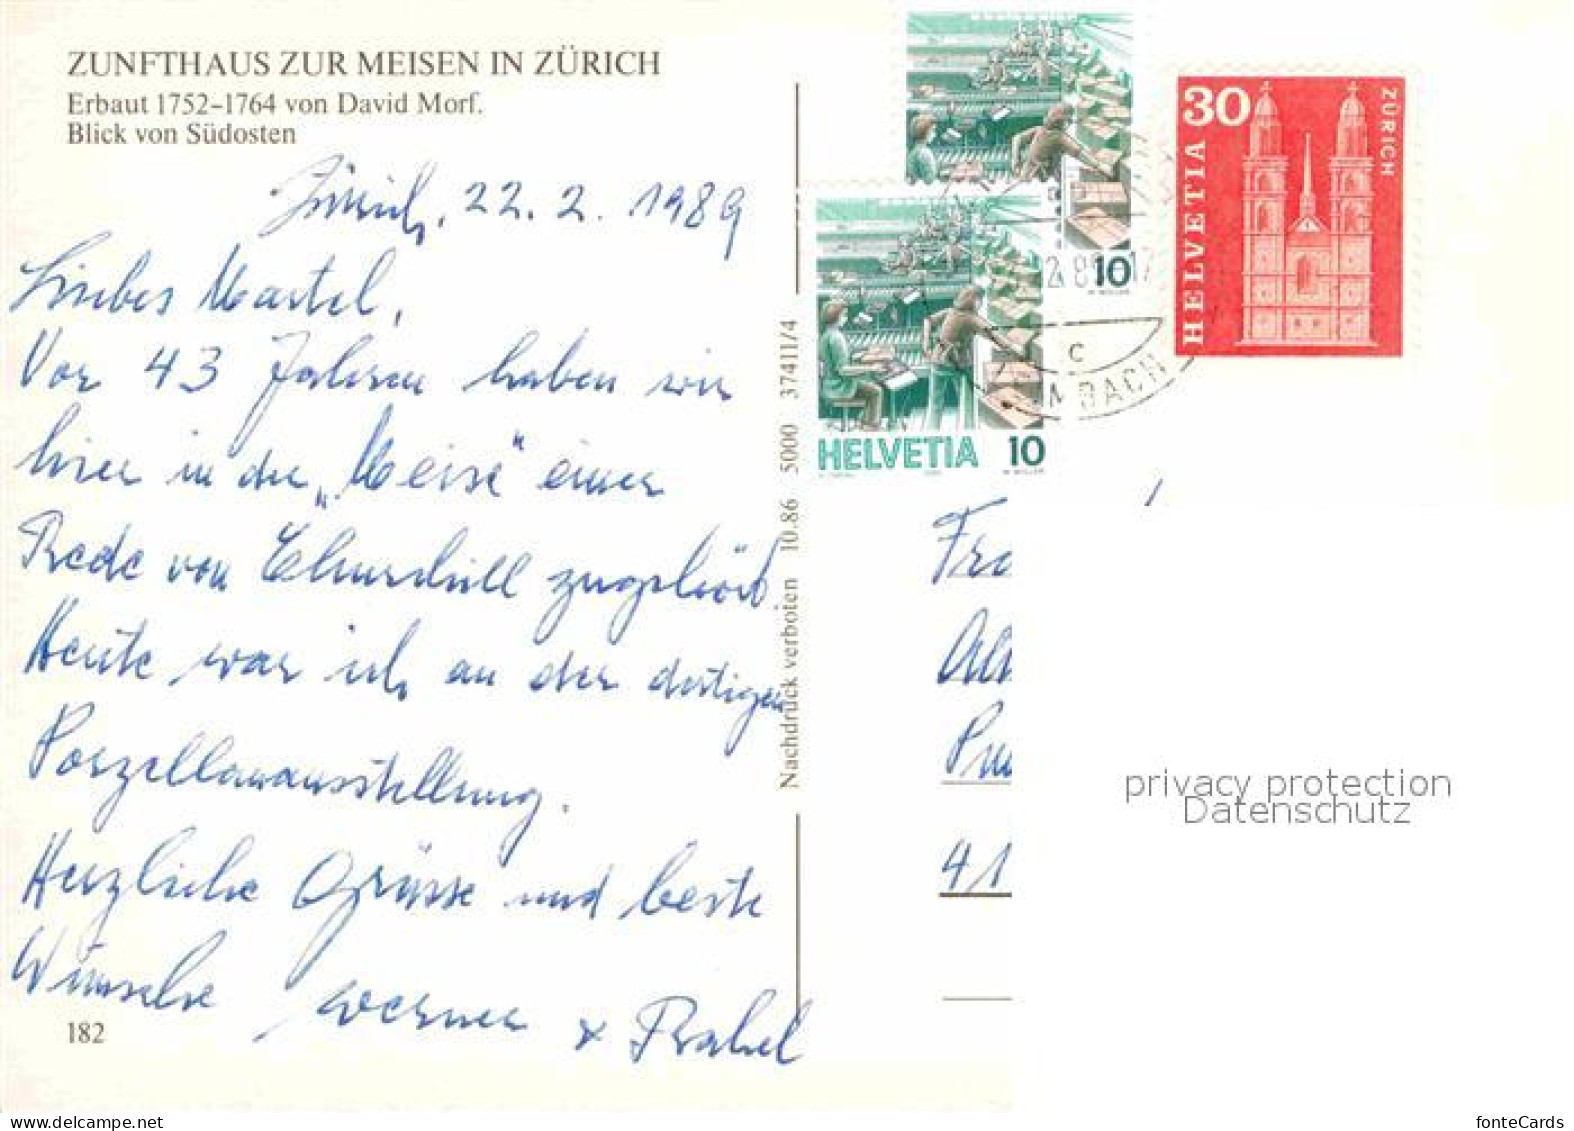 ZUNFTHAUS ZUR MEISEN IN ZÜRICH
Erbaut 1752-1764 von David Morf.
Blick von Südosten
Zürich, 22. 2. 1989
Liebes Martel,
Vor 43 Jahren haben wir
hier in der „Meise“ einer
Rede von Churchill zugehört.
Heute war ich an der dortigen
Porzellanausstellung.
Herzliche Grüsse und beste
Wünsche Werner + Rahel
182
Nachdruck verboten 10.86 5000 37411/4
10
HELVETIA 10
30
HELVETIA
ZÜRICH
C
BACH
41
privacy protection
Datenschutz
www.delcampe.net
fonteCards